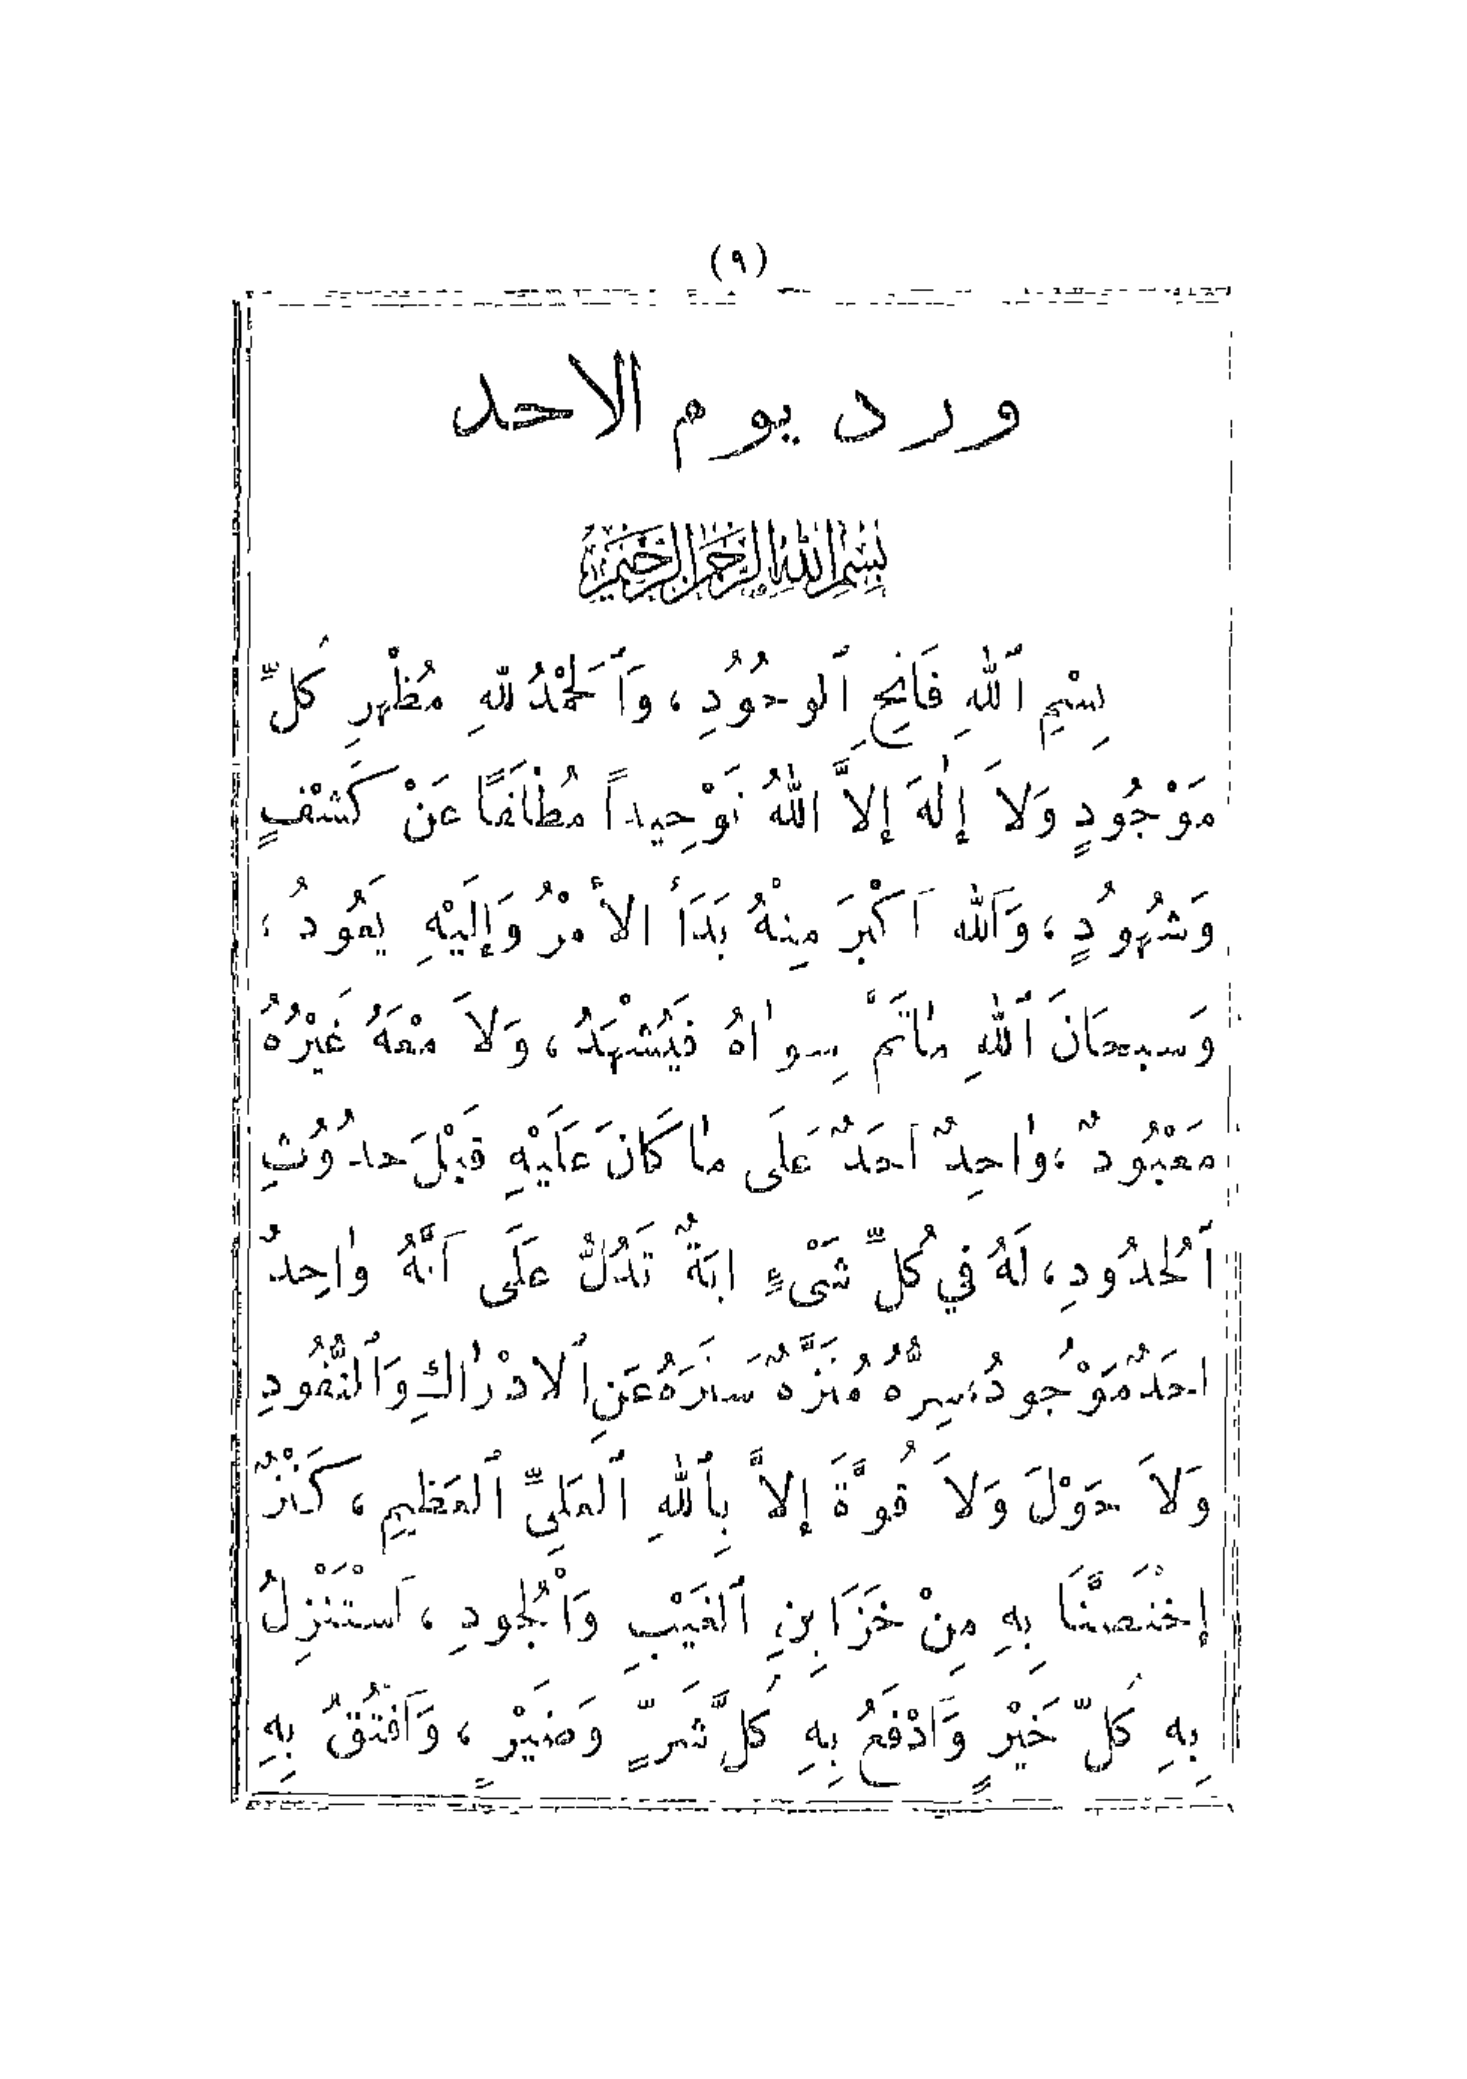 (٩)
ورد يوم الاحد
بِسْمِ اللهِ الرَّحْمَنِ الرَّحِيمِ
بِسْمِ ٱللهِ فَاتِحِ ٱلوجُوُدِ ، وَٱلْحَمْدُ للهِ مُظْهرِ كُلِّ
مَوْجُودٍ وَلاَ إِلٰهَ إِلاَّ اللهُ تَوْحِيداً مُطْلَقًا عَنْ كَشْفٍ
وَشُهُودٍ ، وَٱلله اَكْبَرَ مِنْهُ بَدَأَ الأَمْرُ وَإِلَيْهِ يَعُودُ ،
وَسبحَانَ ٱللهِ مٰاثَمَّ سِوٰاهُ فَيُشْهَدُ ، وَلاَ مْعَهُ غَيْرُهُ
مَعْبُودٌ ، وٰاحِدٌ اَحَدٌ عَلَى مٰا كَانَ عَلَيْهِ قَبْلَ حدُوُثِ
اَلْحُدُودِ ، لَهُ فِي كُلِّ شَىْءٍ ايَةٌ تَدُلُّ عَلَى اَنَّهُ وٰاحِدٌ
احَدٌ مَوْجُودُ ، سِرُّهُ مُنَزَّهٌ سَتَرَهُ عَنِ ٱلادْرٰاكِ وَٱلنُّفُودِ
وَلاَ حَوْلَ وَلاَ قُوَّةَ إِلاَّ بِٱللهِ ٱلعَلِيِّ ٱلعَظِيمِ ، كَنْزٌ
إِخْتَصَّنَا بِهِ مِنْ خَزَايِنِ ٱلغَيْبِ وَٱلْجُودِ ، اَسْتَنْزِلُ
بِهِ كُلِّ خَيْرٍ وَاَدْفَعُ بِهِ كُلَّ شَرٍّ وَضَيْرٍ ، وَاَفتُقُ بِهِ